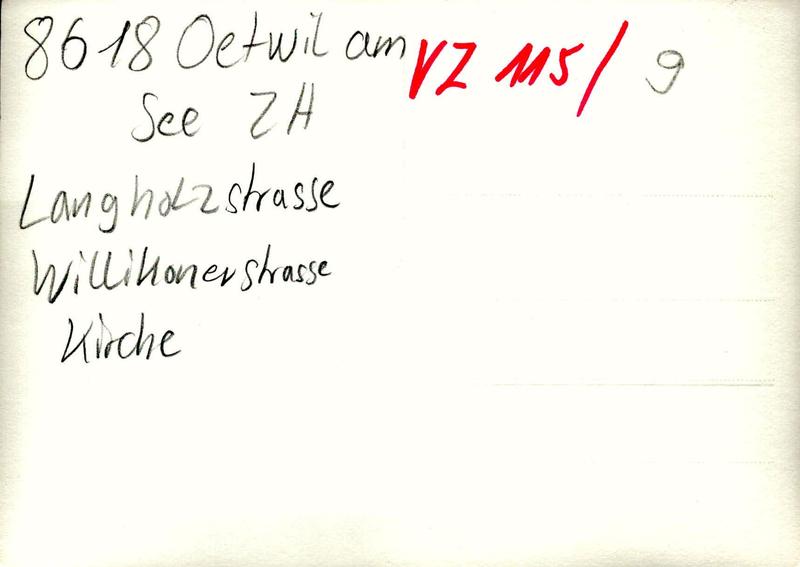 8618 Oetwil am VZ 115/ 9
See ZH
Langholzstrasse
Willikonerstrasse
Kirche